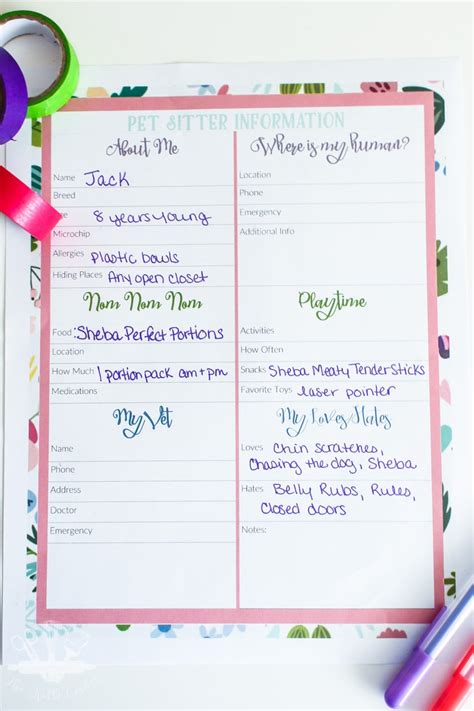 PET SITTER INFORMATION
About Me
Name Jack
Breed
Age 8 years young
Microchip
Allergies Plastic bowls
Hiding Places Any open closet
Nom Nom Nom
Food: Sheba Perfect Portions
Location
How Much 1 portion pack am + pm
Medications
My Vet
Name
Phone
Address
Doctor
Emergency
Where is my human?
Location
Phone
Emergency
Additional Info
Playtime
Activities
How Often
Snacks Sheba Meaty Tender Sticks
Favorite Toys laser pointer
My Loves/Hates
Loves Chin scratches,
Chasing the dog, Sheba
Hates Belly Rubs, Rules,
Closed doors
Notes: